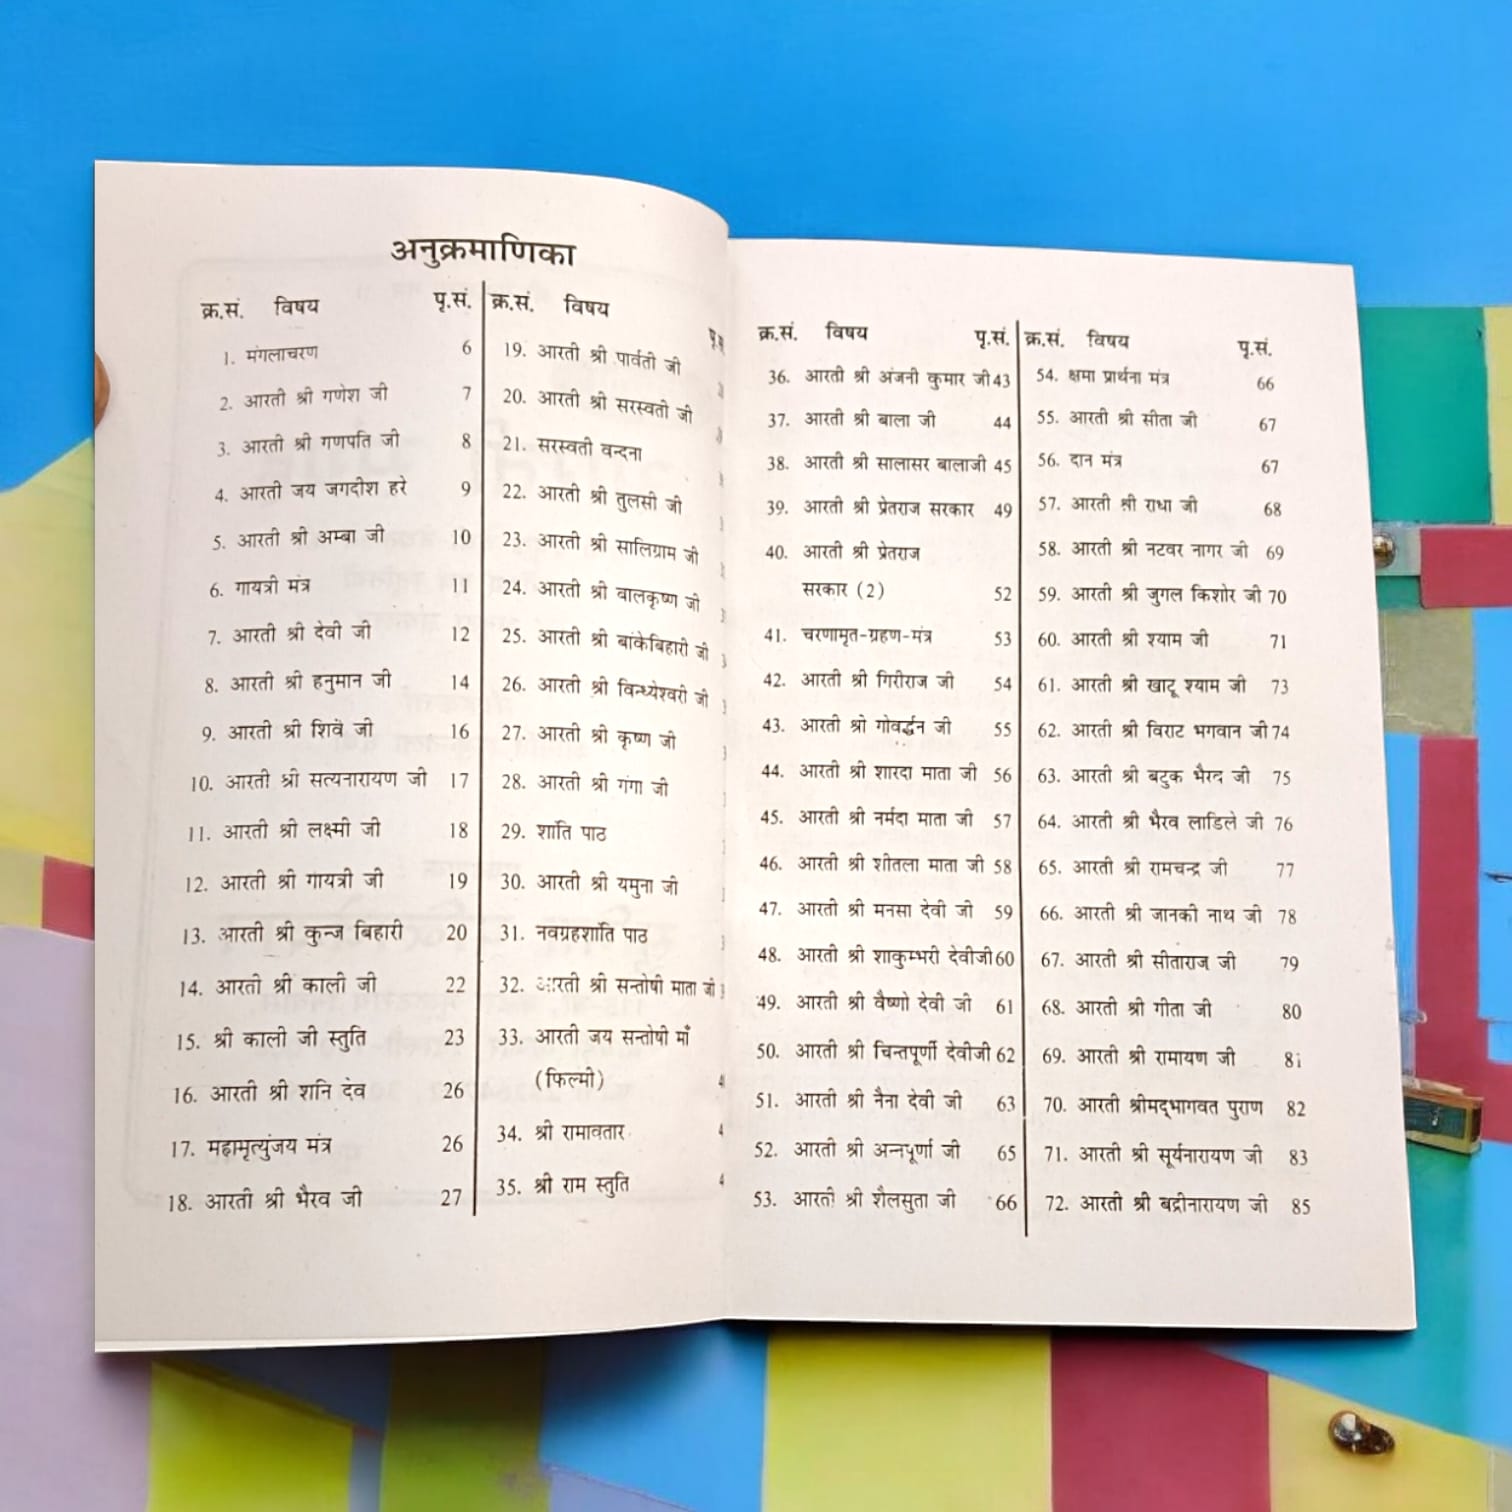 अनुक्रमाणिका
क्र.सं. विषय पृ.सं.
1. मंगलाचरण 6
2. आरती श्री गणेश जी 7
3. आरती श्री गणपति जी 8
4. आरती जय जगदीश हरे 9
5. आरती श्री अम्बा जी 10
6. गायत्री मंत्र 11
7. आरती श्री देवी जी 12
8. आरती श्री हनुमान जी 14
9. आरती श्री शिव जी 16
10. आरती श्री सत्यनारायण जी 17
11. आरती श्री लक्ष्मी जी 18
12. आरती श्री गायत्री जी 19
13. आरती श्री कुन्ज बिहारी 20
14. आरती श्री काली जी 22
15. श्री काली जी स्तुति 23
16. आरती श्री शनि देव 26
17. महामृत्युंजय मंत्र 26
18. आरती श्री भैरव जी 27
क्र.सं. विषय
19. आरती श्री पार्वती जी
20. आरती श्री सरस्वती जी
21. सरस्वती वन्दना
22. आरती श्री तुलसी जी
23. आरती श्री सालिग्राम जी
24. आरती श्री बालकृष्ण जी
25. आरती श्री बांकेबिहारी जी
26. आरती श्री विन्ध्येश्वरी जी
27. आरती श्री कृष्ण जी
28. आरती श्री गंगा जी
29. शांति पाठ
30. आरती श्री यमुना जी
31. नवग्रहशांति पाठ
32. आरती श्री सन्तोषी माता जी
33. आरती जय सन्तोषी माँ
(फिल्मी)
34. श्री रामावतार
35. श्री राम स्तुति
क्र.सं. विषय पृ.सं.
36. आरती श्री अंजनी कुमार जी 43
37. आरती श्री बाला जी 44
38. आरती श्री सालासर बालाजी 45
39. आरती श्री प्रेतराज सरकार 49
40. आरती श्री प्रेतराज
सरकार (2) 52
41. चरणामृत-ग्रहण-मंत्र 53
42. आरती श्री गिरीराज जी 54
43. आरती श्री गोवर्द्धन जी 55
44. आरती श्री शारदा माता जी 56
45. आरती श्री नर्मदा माता जी 57
46. आरती श्री शीतला माता जी 58
47. आरती श्री मनसा देवी जी 59
48. आरती श्री शाकुम्भरी देवीजी 60
49. आरती श्री वैष्णो देवी जी 61
50. आरती श्री चिन्तपूर्णी देवीजी 62
51. आरती श्री नैना देवी जी 63
52. आरती श्री अन्नपूर्णा जी 65
53. आरती श्री शैलसुता जी 66
क्र.सं. विषय पृ.सं.
54. क्षमा प्रार्थना मंत्र 66
55. आरती श्री सीता जी 67
56. दान मंत्र 67
57. आरती श्री राधा जी 68
58. आरती श्री नटवर नागर जी 69
59. आरती श्री जुगल किशोर जी 70
60. आरती श्री श्याम जी 71
61. आरती श्री खाटू श्याम जी 73
62. आरती श्री विराट भगवान जी 74
63. आरती श्री बटुक भैरव जी 75
64. आरती श्री भैरव लाडिले जी 76
65. आरती श्री रामचन्द्र जी 77
66. आरती श्री जानकी नाथ जी 78
67. आरती श्री सीताराज जी 79
68. आरती श्री गीता जी 80
69. आरती श्री रामायण जी 81
70. आरती श्रीमद्भागवत पुराण 82
71. आरती श्री सूर्यनारायण जी 83
72. आरती श्री बद्रीनारायण जी 85